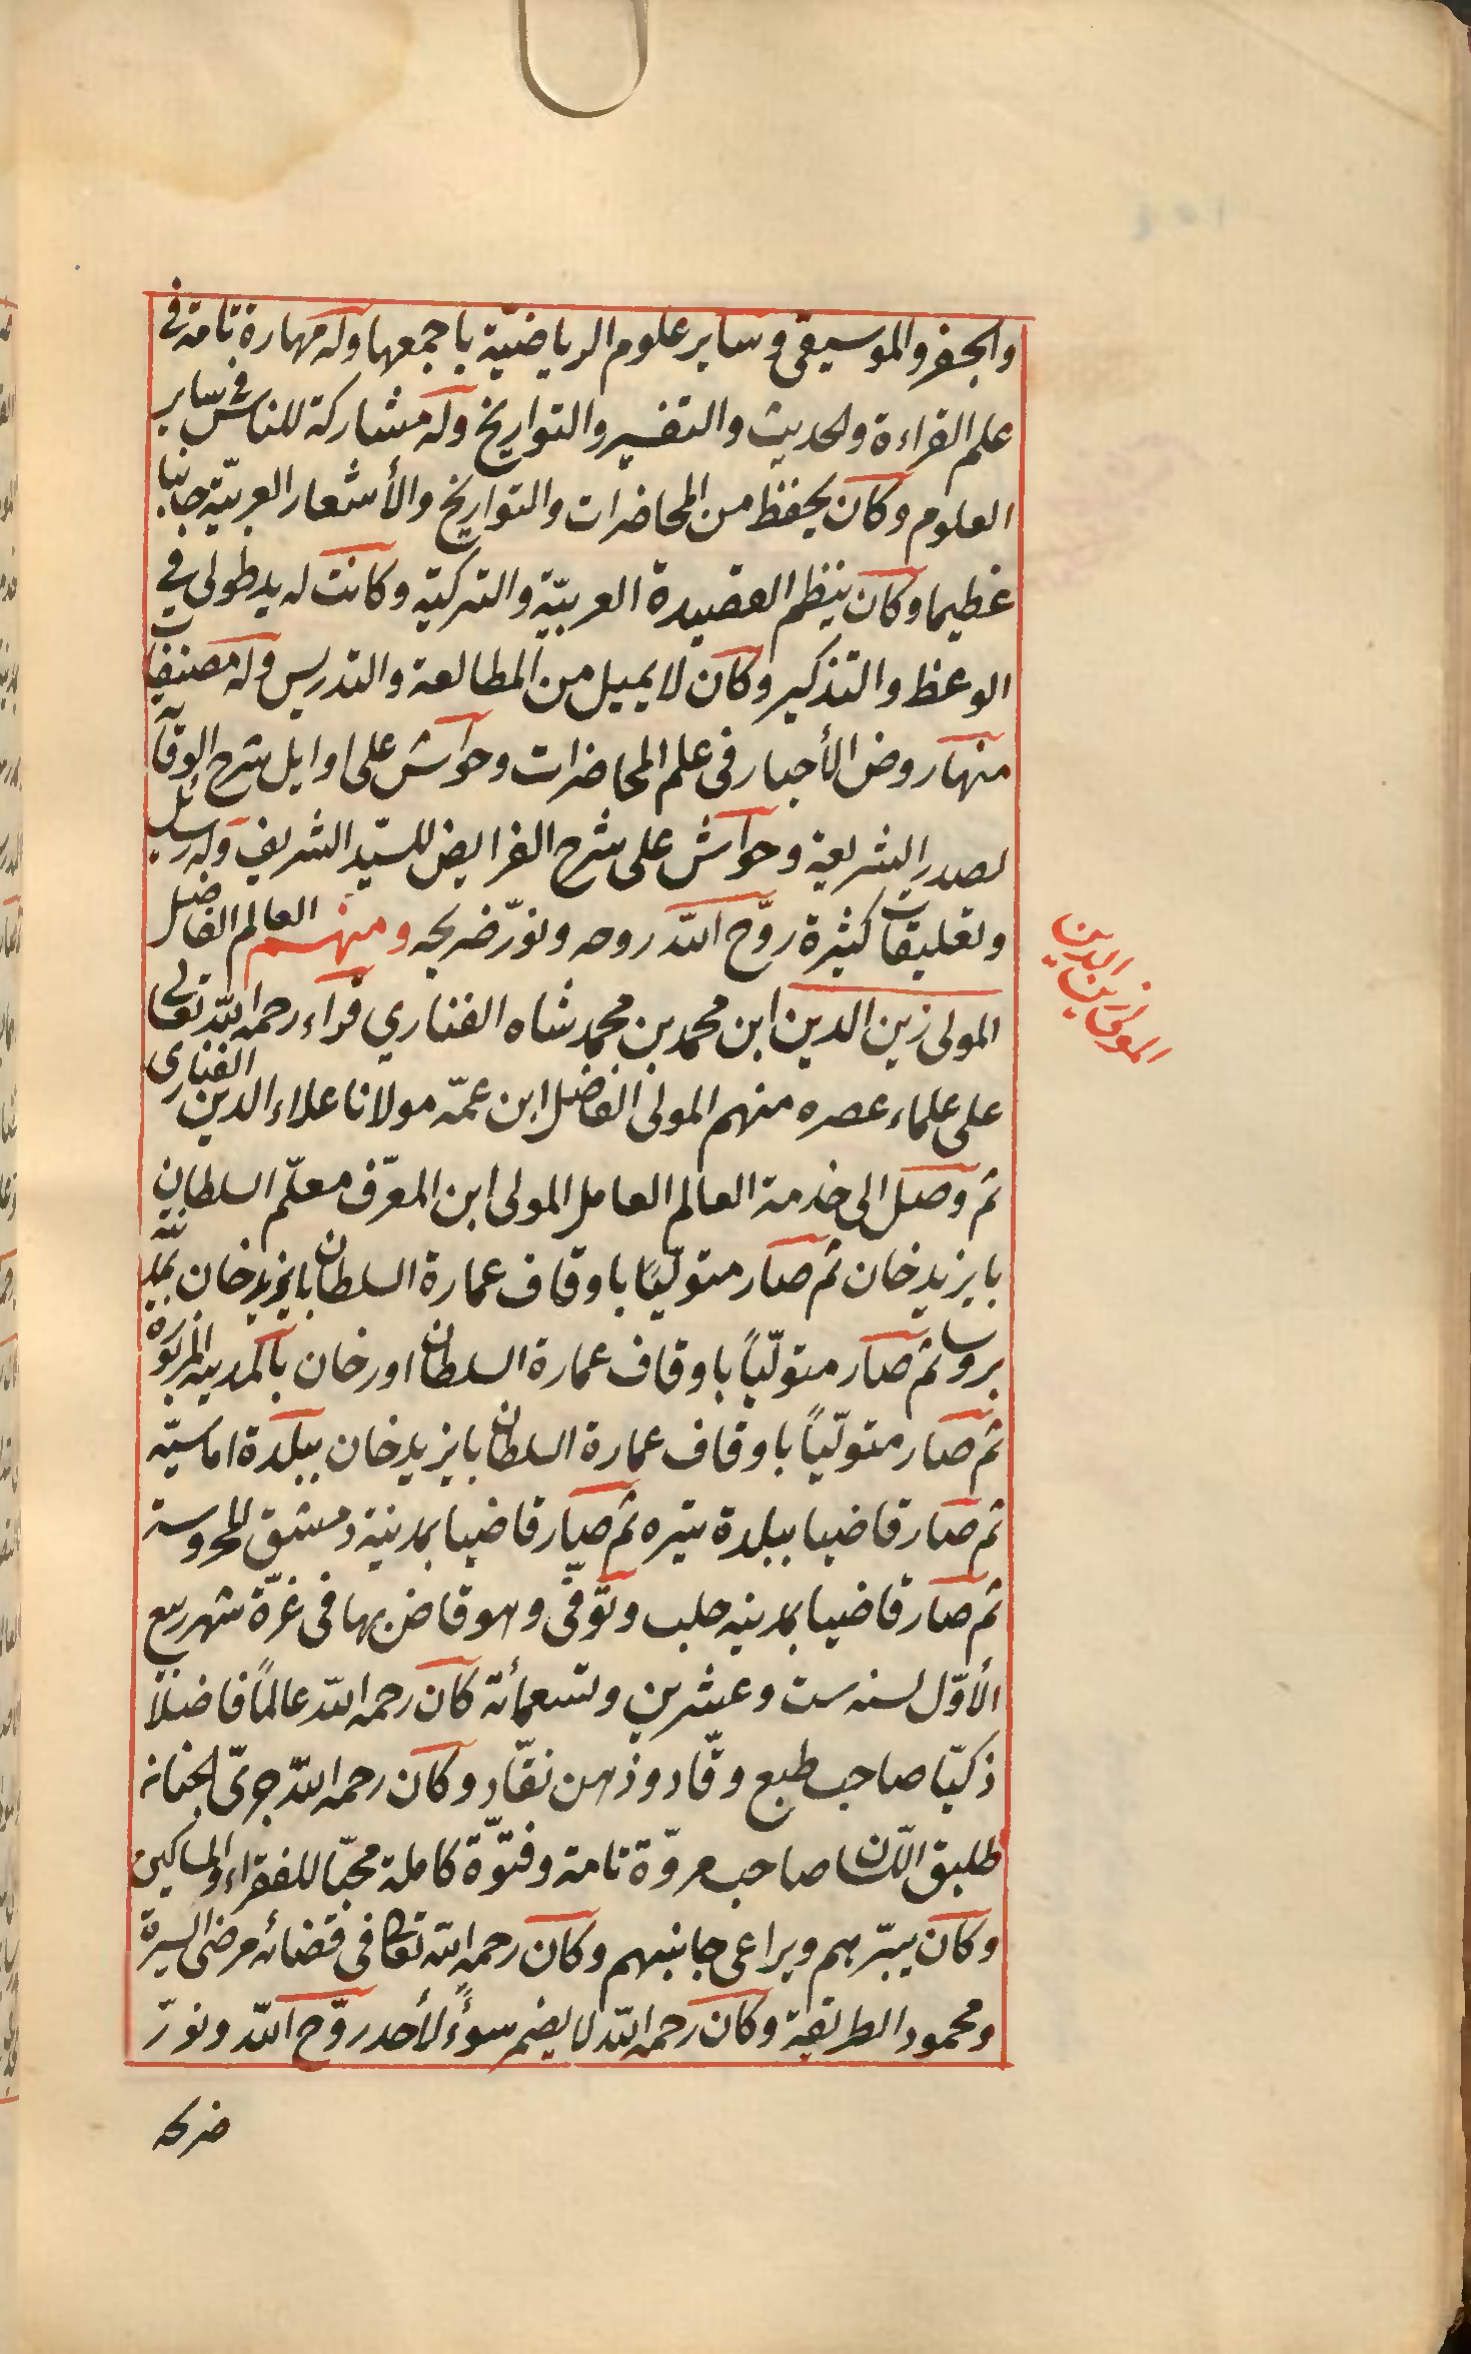 والجفر والموسيقى وساير علوم الرياضيّة باجمعها وله مهارة تامة في
علم القراءة والحديث والتفسير والتواريخ وله مشاركة للناس في ساير
العلوم وكان يحفظ من المحاضرات والتواريخ والأشعار العربيّة جانبا
عظيما وكان ينظم القصيدة العربيّة والتركية وكانت له يد طولى في
الوعظ والتذكير وكان لا يميل من المطالعة والتدريس وله مصنفات
منها روض الأخبار في علم المحاضرات وحواش على اوايل شرح الوقاية
لصدر الشريعة وحواش على شرح الفرايض للسيّد الشريف وله رسائل
وتعليقات كثيرة روّح الله روحه ونوّر ضريحه ومنهم العالم الفاضل
المولى زين الدين ابن محمد بن محمد شاه الفناري قراء رحمه الله تعالى
على علماء عصره منهم المولى الفاضل ابن عمّه مولانا علاء الدين الفناري
ثم وصل الى خدمة العالم العامل المولى ابن المعرّف معلّم السلطان
بايزيد خان ثم صار متوليّا باوقاف عمارة السلطان بايزيد خان بمدينة
بروسا ثم صار متولّياً باوقاف عمارة السلطان اورخان بالمدينة المزبورة
ثم صار متولّياً باوقاف عمارة السلطان بايزيد خان ببلدة اماسيّه
ثم صار قاضيا ببلدة تيره ثم صار قاضيا بمدينة دمشق المحروسة
ثم صار قاضيا بمدينه حلب وتوفّى وهو قاض بها في غرّة شهر ربيع
الأوّل لسنه ست وعشرين وتسعمائة كان رحمه الله عالماً فاضلا
ذكيّا صاحب طبع وقّاد وذهن نقّاد وكان رحمه الله جرئ الجنان
طليق اللسان صاحب مروّة تامة وفتوّة كاملة محبّا للفقراء والمساكين
وكان يبرّهم ويراعى جانبهم وكان رحمه الله تعالى في قضائه مرضى السيرة
ومحمود الطريقة وكان رحمه الله لا يضمر سوءً لأحد روّح الله ونوّر
ضريحه
المولى زين الدين